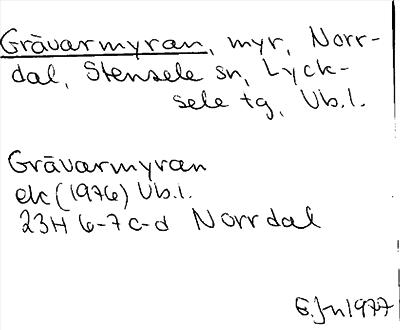 Grävarmyran, myr, Norr-
dal, Stensele sn, Lyck-
sele tg, Vb.l.
Grävarmyran
ek (1976) Vb.l.
23H 6-7 c-d Norrdal
E.Jn 1977